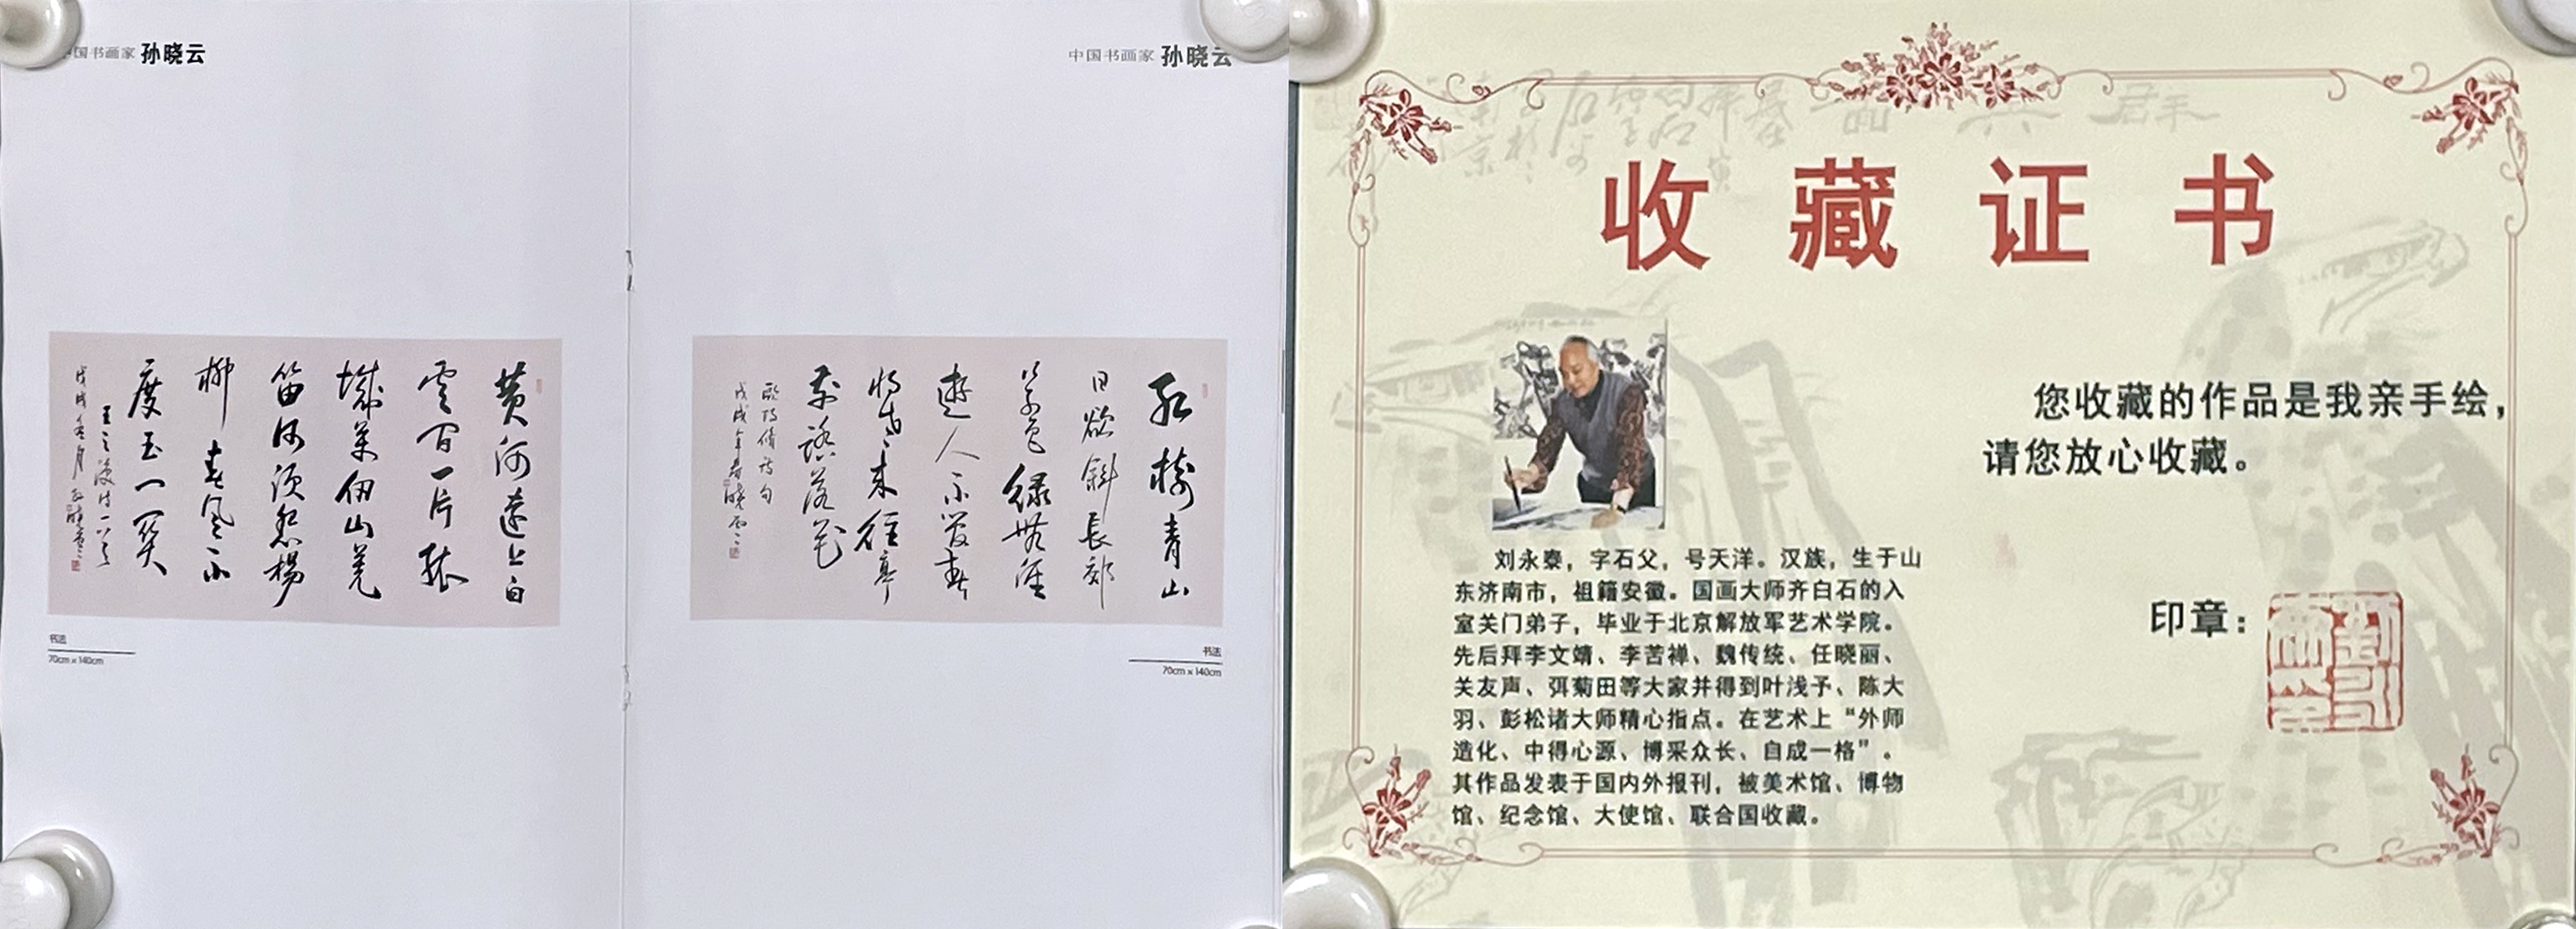 国书画家 孙晓云
黄河遠上白
雲間一片孤
城萬仞山羌
笛何須怨楊
柳春風不
度玉门关
王之涣诗一首
戊戌春月 孙晓云
书法
70cm x 140cm
中国书画家 孙晓云
红樹青山
日欲斜長郊
草色绿無涯
遊人不管春
将老来往亭
前踏落花
歐陽脩詩句
戊戌年春晓云
书法
70cm x 140cm
收藏证书
您收藏的作品是我亲手绘，
请您放心收藏。
印章：
刘永泰，字石父，号天洋。汉族，生于山
东济南市，祖籍安徽。国画大师齐白石的入
室关门弟子，毕业于北京解放军艺术学院。
先后拜李文靖、李苦禅、魏传统、任晓丽、
关友声、弭菊田等大家并得到叶浅予、陈大
羽、彭松诸大师精心指点。在艺术上“外师
造化、中得心源、博采众长、自成一格”。
其作品发表于国内外报刊，被美术馆、博物
馆、纪念馆、大使馆、联合国收藏。